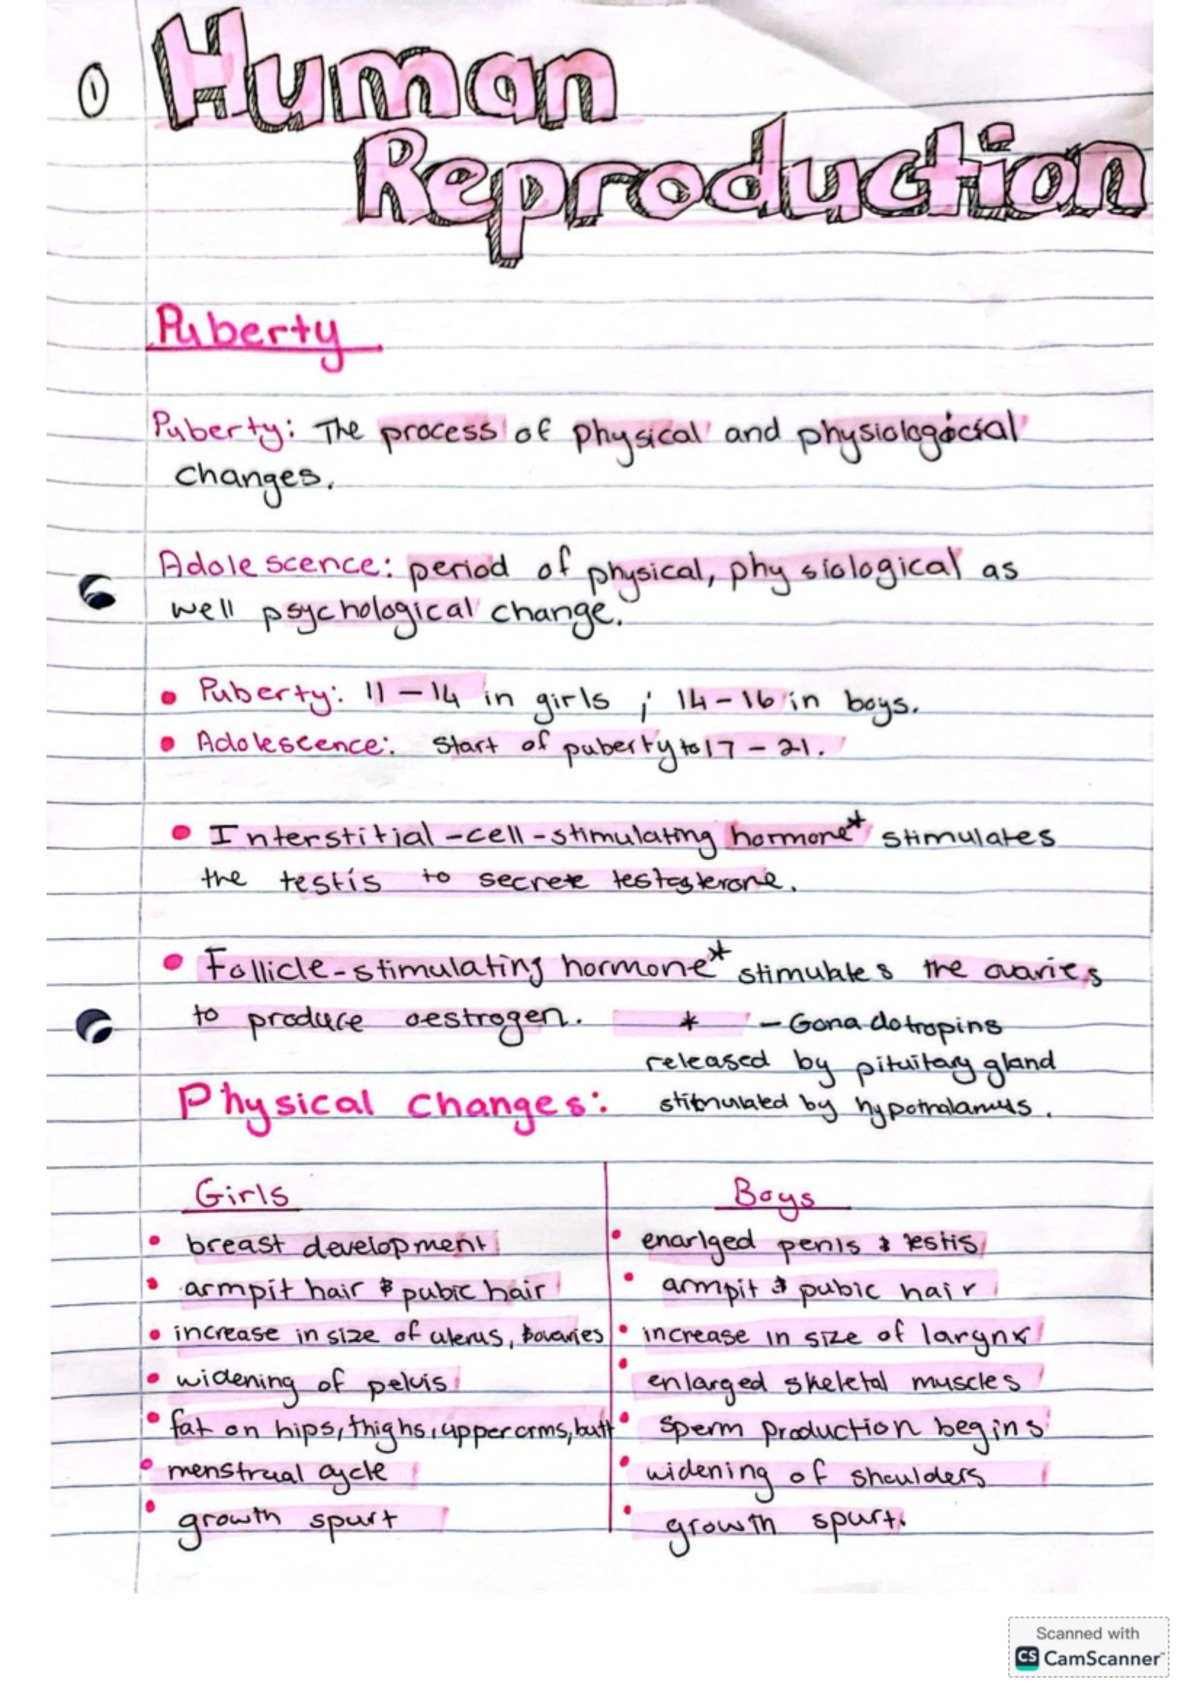 ① Human
Reproduction
Puberty
Puberty: The process of physical and physiologicial
changes.
Adolescence: period of physical, physiological as
well psychological change.
• Puberty: 11 – 14 in girls ; 14 – 16 in boys.
• Adolescence: start of puberty to 17 – 21.
• Interstitial-cell-stimulating hormone* stimulates
the testis to secrete testosterone.
• Follicle-stimulating hormone* stimulates the ovaries
to produce oestrogen. * – Gonadotropins
released by pituitary gland
Physical changes: stimulated by hypothalamus.
Girls Boys
• breast development • enarlged penis & testis
• armpit hair & pubic hair • armpit & pubic hair
• increase in size of uterus, & ovaries • increase in size of larynx
• widening of pelvis • enlarged skeletal muscles
• fat on hips, thighs, upper arms, butt • sperm production begins
• menstrual cycle • widening of shoulders
• growth spurt • growth spurt.
Scanned with
CS CamScanner